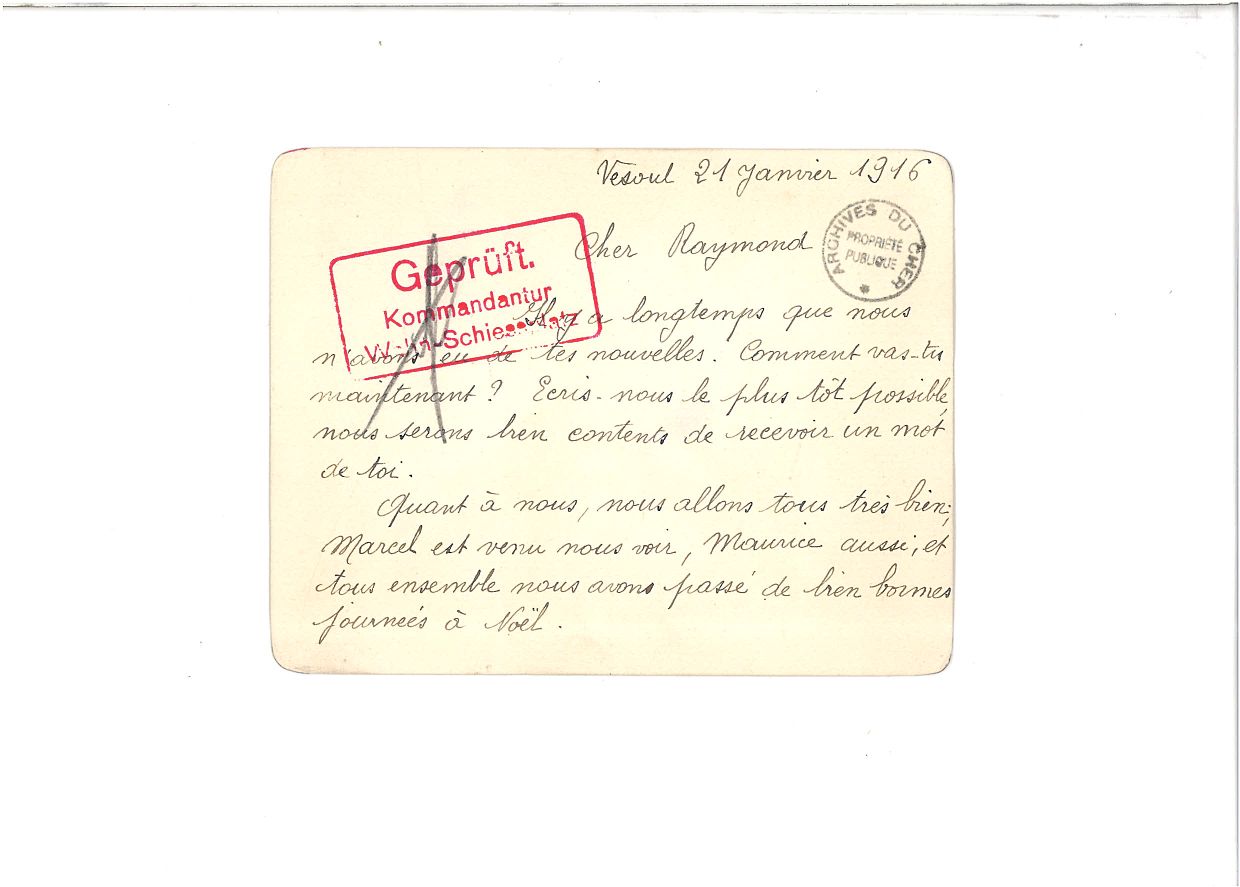 Vesoul 21 Janvier 1916
Cher Raymond
ARCHIVES DU CHER
PROPRIÉTÉ
PUBLIQUE
Geprüft.
Kommandantur
Wahn-Schiessplatz
Il y a longtemps que nous
n'avons eu de tes nouvelles. Comment vas-tu
maintenant ? Ecris-nous le plus tôt possible,
nous serons bien contents de recevoir un mot
de toi.
Quant à nous, nous allons tous très bien;
Marcel est venu nous voir, Maurice aussi, et
tous ensemble nous avons passé de bien bonnes
journées à Noël.